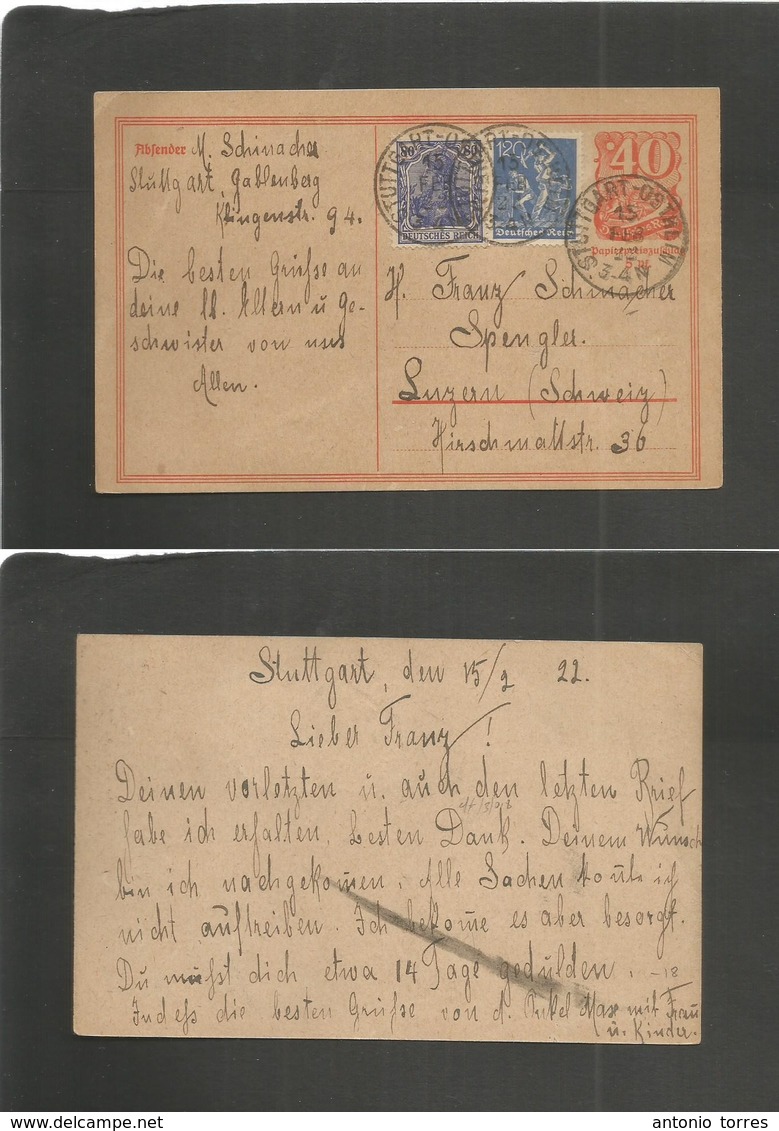 Absender M. Schumacher
Stuttgart, Gablenberg
Klingenstr. 94.
Die besten Grüsse an
deine lb. Altern u Ge-
schwister von uns
Allen.
STUTTGART-OSTHEIM
15
FEB
80
DEUTSCHES REICH
120
Deutsches Reich
40
STUTTGART-OSTHEIM
15
FEB
22
3-4 N
Papierpreiszuschlag
5 Pf.
H. Franz Schumacher
Spengler.
Luzern (Schweiz)
Hirschmattstr. 36
Stuttgart, den 15/2 22.
Lieber Franz!
Deinen vorletzten u. auch den letzten Brief
habe ich erhalten. Besten Dank. Deinem Wunsch
bin ich nachgekom̅en. Alle Sachen konnte ich
nicht auftreiben. Ich bekom̅e es aber besorgt.
Du mußst dich etwa 14 Tage gedulden. -18
Indeßs die besten Grüsse von d. Onkel Max mit Frau
u. Kinder.
antonio torres